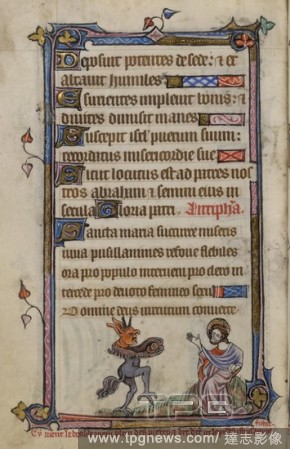 Deposuit potentes de sede: & ex
altauit humiles
Esurientes impleuit bonis: &
diuites dimisit inanes
Suscepit isrl' puerum suum:
recordatus misericordie sue
Sicut locutus est ad patres nos
tros abraham & semini eius in
secula Gloria patri Antipha.
Sancta maria succurre miseris
iuua pusillanimes refoue flebiles
ora pro populo interueni pro clero in
tercede pro deuoto femineo sexu
Domine deus
TPG
www.tpgnews.com / 達志影像